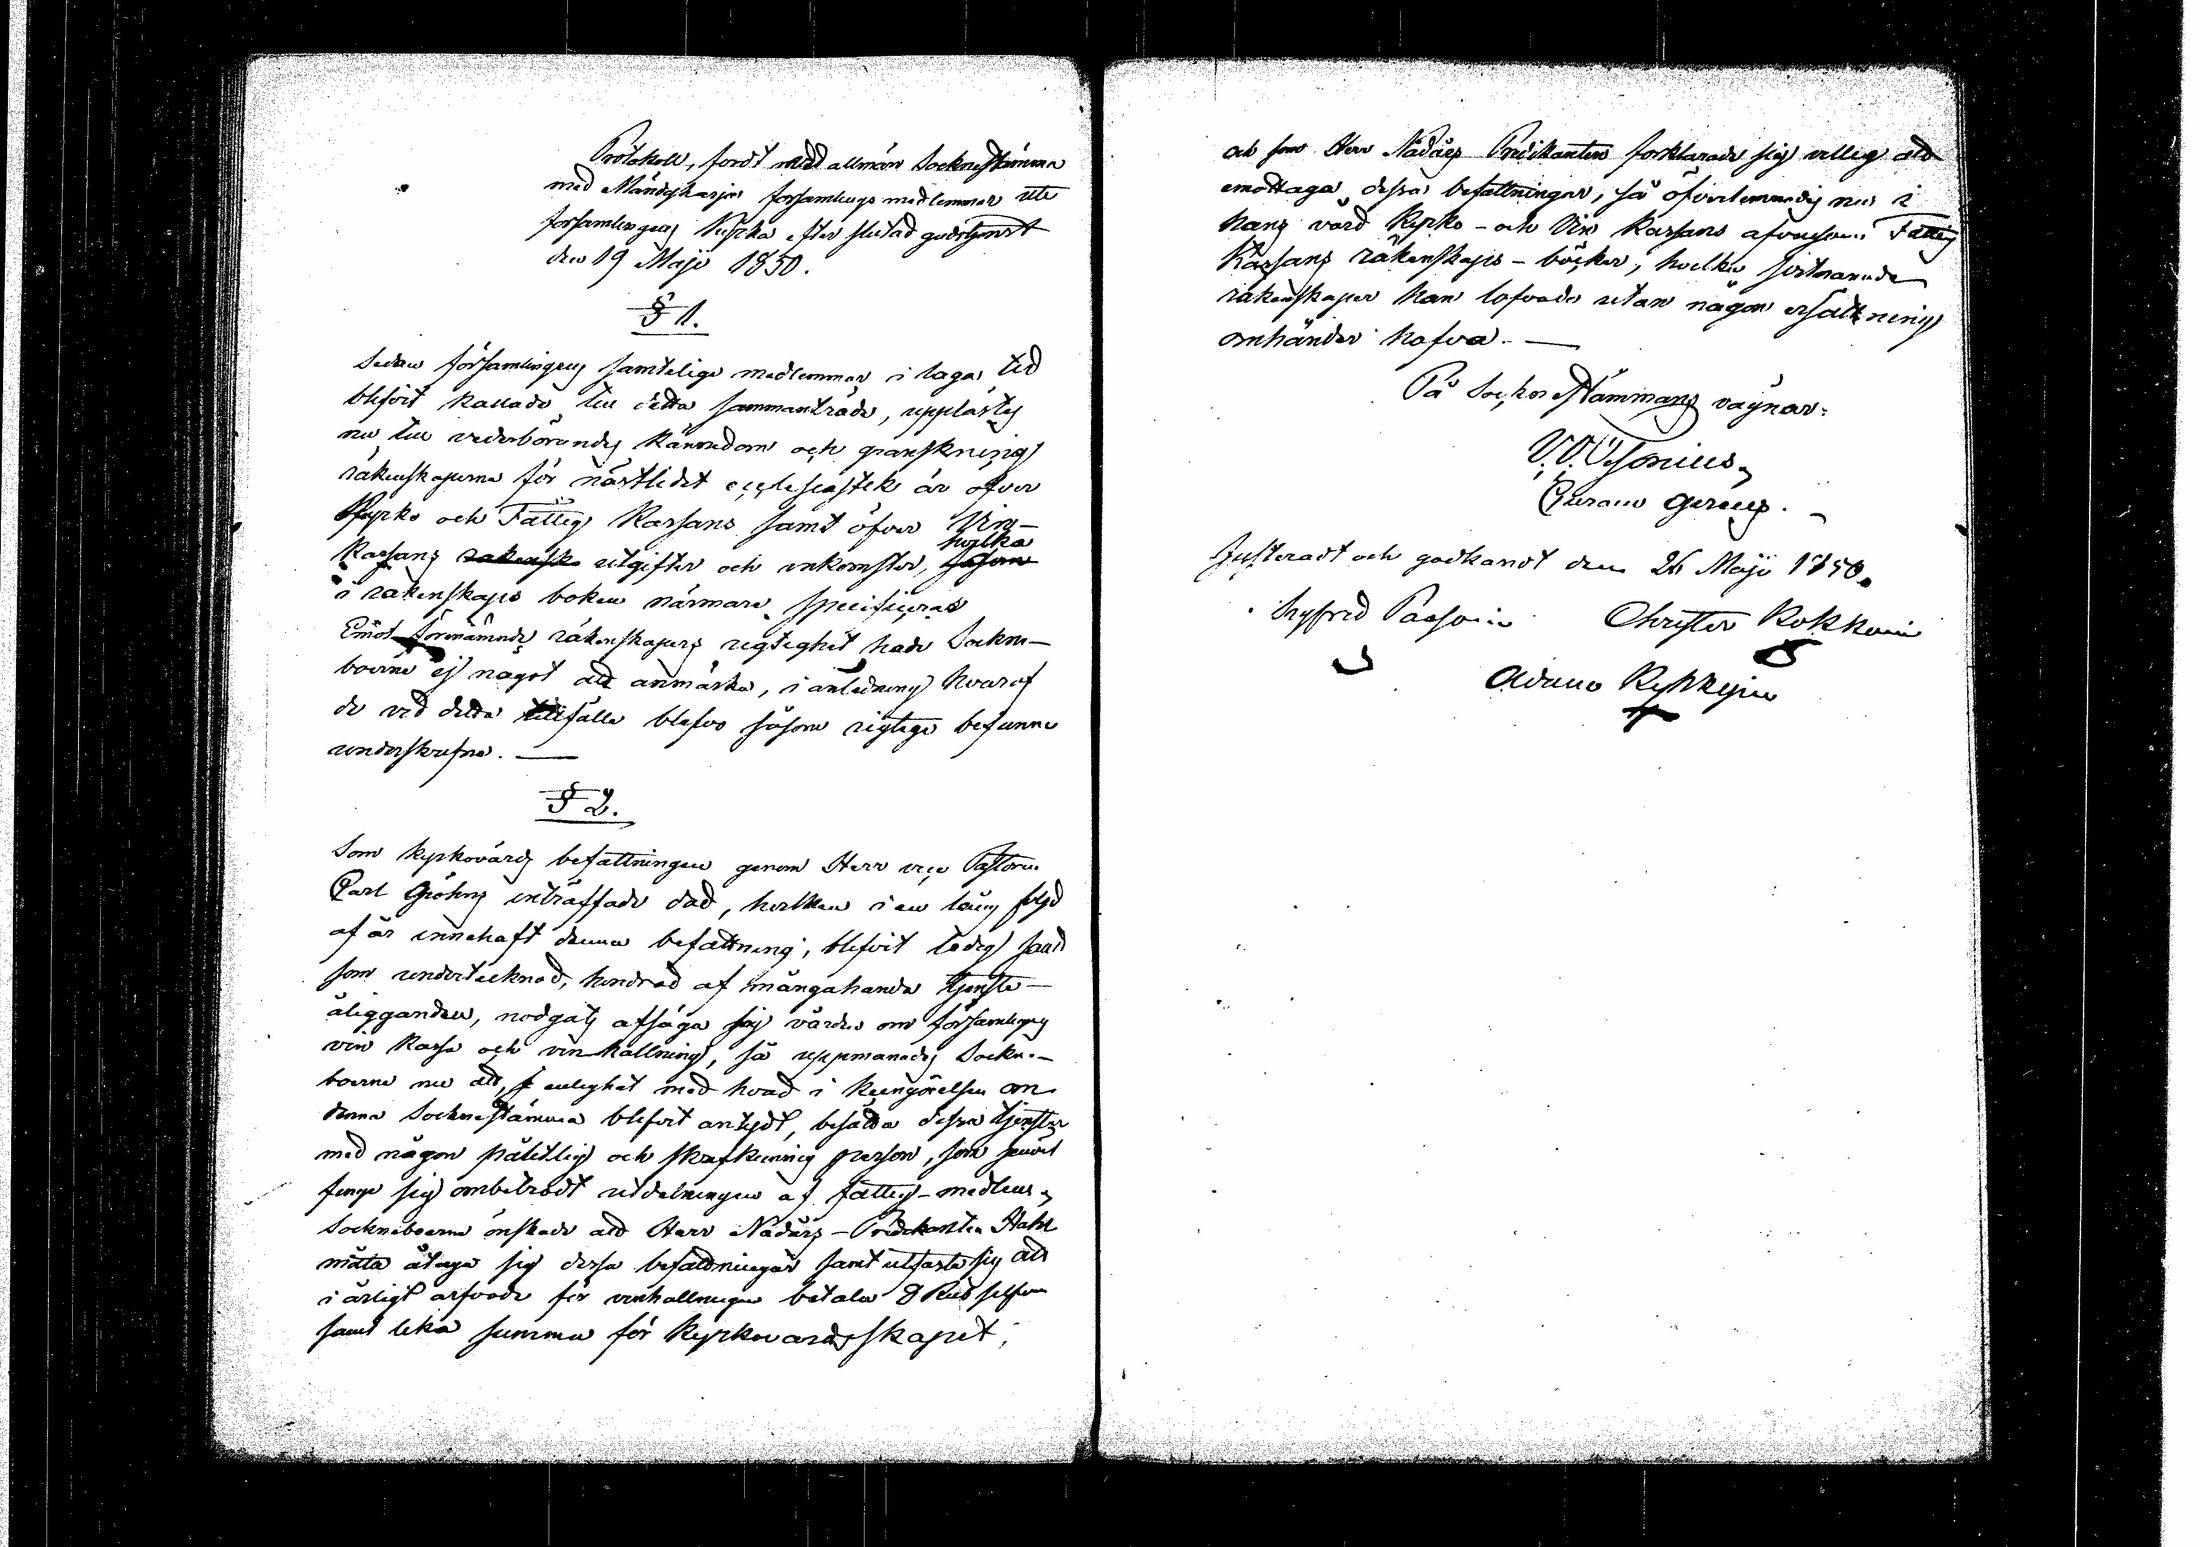 Protokoll, fördt med allmän Sockne stämma
med Mändyharju församlings medlemmar uti
församlingens Kyrka efter slutad gudstjenst
den 19 Maji 1850.
§ 1.
Sedan församlingens samtelige medlemmar i laga tid
blifvit kallade till detta sammanträde, upplästes
nu till vederbörandes kännedom och granskning
räkenskaperna för nästledet ecclesiastik år öfver
Kyrko och Fattig Kassans samt öfver Vin-
Kassans räkensk utgifter och inkomster, såsom hvilka
i räkenskaps boken närmare specificeras
Emot förenämnde räkenskapers rigtighet hade Sockne-
boerne ej något att anmärka, i anledning hvaraf
de vid detta tillfälle blefvo såsom rigtiga befunne
underskrefne. —
§ 2.
Som kyrkovärds befattningen genom Herr vice Pastorn
Carl Gröhns inträffade död, hvilken i en lång följd
af år innehaft denna befattning, blifvit ledig samt
som undertecknad, hindrad af mångahanda tjenste-
åligganden, nödgats afsäga sig vården om församlings
vin kassa och vinhållning, så uppmanades Sockne-
boerne nu att, i enlighet med hvad i kungörelsen om
denna Sockne stämma blifvit antydt, besätta dessa tjenster
med någon pålitlig och skrifkunnig person, som
finge sig ombetrodt utdelningen af fattig-medlen,
Socknaboerne önskade att Herr Nådårs-Predikanten
måtte åtaga sig dessa befattningar samt utfäste sig att
i årligt arfvode för vinhållningen betala 8 Rub silfver
samt lika summa för Kyrkovärdsskapet;
och som Herr Nådårs Predikanten förklarade sig villig att
emottaga dessa befattningar, så öfverlemnades nu i
hans vård Kyrko- och Vin kassans äfvensom Fattig
Kassans räkenskaps-böcker, hvilka sistnämnde
räkenskaper han lofvade utan någon ersättning
omhänder hafva. —
På Sockne Stämmans vägnar:
Justeradt och godkändt den 26 Maji 1850.
Sigfrid Christer Kokkoin
Adam